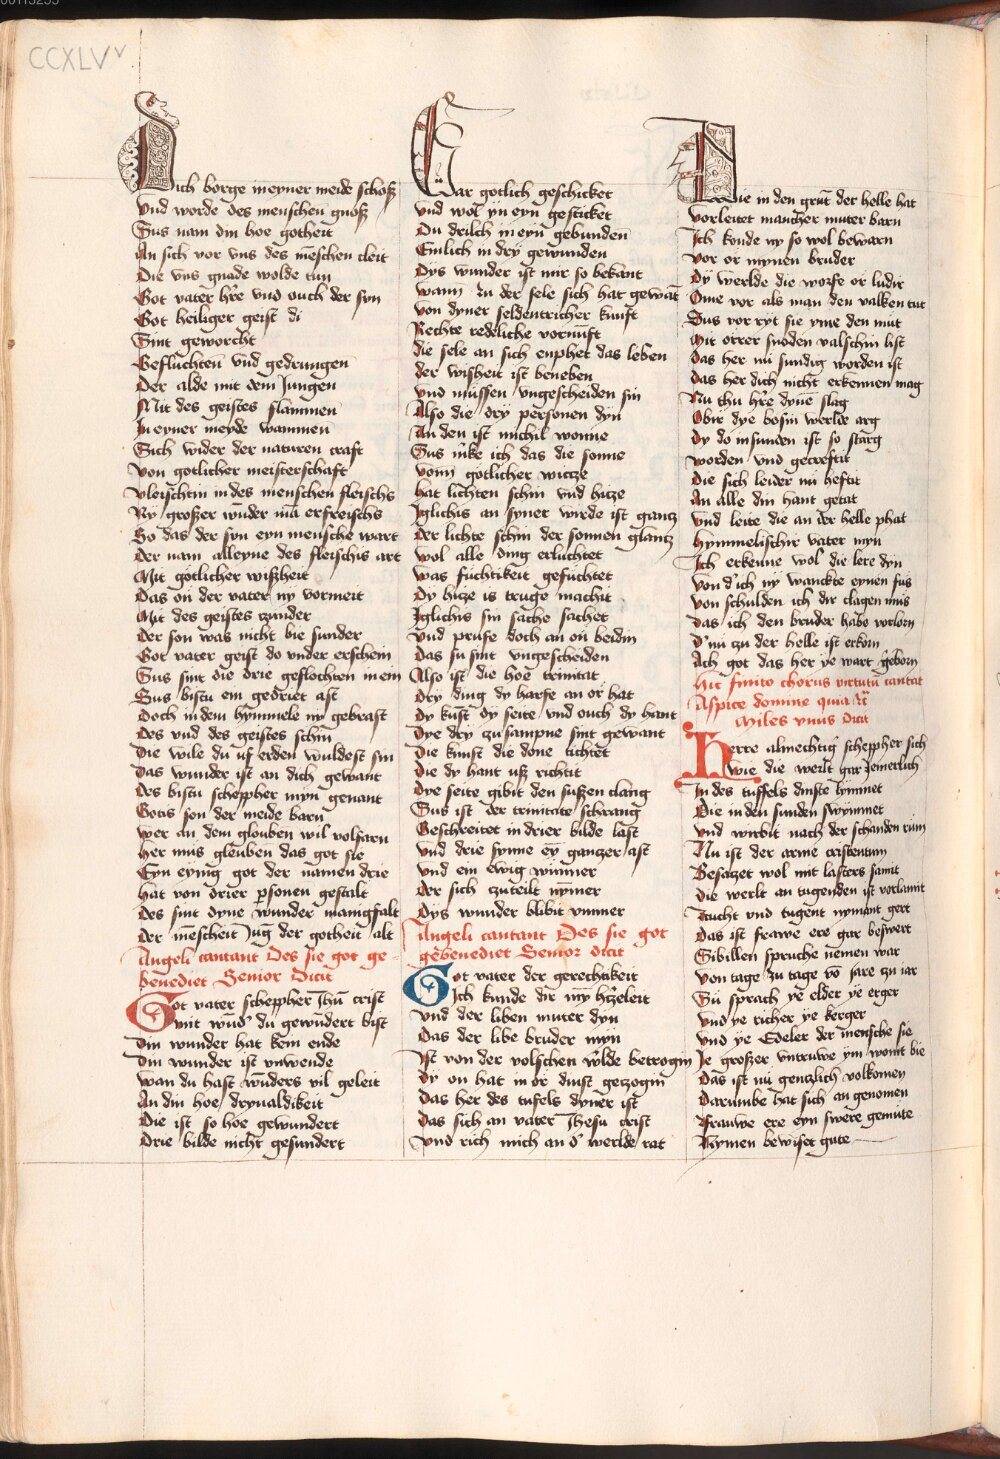 CCXLVv
Dich borge ineyner meide schosz
Vnd worde des menschen gnosz
Sus nam din hoe gotheit
An sich vor vns des mēschen cleit
Die vns gnade wolde tun
Got vater hr̄e vnd ouch der svn
Got heiliger geist di
Sint geworcht
Geflüchten vnd gedrungen
Der alde mit dem Jungen
Mit des geistes flammen
In eyner meyde wammen
Sich wider der naturen craft
Von gotlicher meisterschaft
vleischtin indes menschen fleischs
Ny groszer wūder mā erfreischs
So das der svn eyn mensche wart
Der nam alleyne des fleischis art
Mit gotlicher wiszheit
Das on der vater ny vormeit
Mit des geistes czunder
Der son was nicht bie sunder
Got vater geist do vnder erschein
Sus sint die drie geflochten in ein
Sus bistu ein gedriet ast
Doch indem hymmele ny gebrast
Des vnd des geistes schin
Die wile du uf erden wuldest sin
Das wunder ist an dich gewant
Des bistu schеppher myn genant
Gotis son der meide barn
Wer an dem glouben wil volfarn
Her mus gleuben das got sie
Eyn eynig got der namen drie
Hat von drier psonen gestalt
Des sint dyne wunder manigfalt
Der mēscheit Jug der gotheit alt
Angeli cantant Des sie got ge-
benediet Senior Dicit
Got vater scheppher Jhū crist
mit wūd' du gewundert bist
Din wunder hat kein ende
Din wunder ist vnwende
Wan du hast wūders vil geleit
An din hoe dryualdikeit
Die ist so hoe gewundert
Drie bilde nicht gesundert
Gar gotlich geschicket
Vnd wol yn eyn gesticket
Du drilch in eyn gebunden
Einlich in dry gewunden
Dys wunder ist mir so bekant
Wann zu der sele sich hat gewāt
Von dyner seldentricher kunft
Rechte redeliche vornūft
die sele an sich enphet das leben
der wisheit ist beneben
Vnd müssen vngescheiden sin
Also die dry personen dyn
An den ist michil wonne
Sus mke ich das die sonne
Vonn gotlicher wicze
Hat lichten schin vnd hicze
Iglichis an syner wirde ist gancz
Der lichte schin der sonnen glancz
Wol alle ding erluchtet
Was fuchtikeit gefuchtet
Dy hicze is truge machit
Iglichis sin sache sachet
Vnd prufe doch an on beidin
Das su sint vngescheiden
Also ist die hoe trinitat
Dry ding dy harfe an or hat
Dy kunst dy seite vnd ouch dy hant
Dye dry zu sampne sint gewant
Die kunst die done tichtet
Die dy hant usz richtit
Dye seite gibit den suszen clang
Sus ist der trinitate schrang
Geschreitet in drier bilde last
Vnd drie synne ey ganczer ast
Vnd ein ewig wimmer
Der sich zuteilt nymer
Dys wunder blibit vmmer
Angeli cantant Des sie got
gebenediet Senior dicit
Got vater der gerechtikeit
Ich kunde dir my h'czeleit
Vnd der liben muter dyn
Das der libe bruder myn
Ist von der volschen w'lde betrogin
Dy on hat in or dinst geczogin
Das her des tufels dyner ist
Das sich an vater Jhesu crist
Vnd rich mich an d' werlde rat
Die in den grūt der helle hat
Vorleitet mancher muter barn
Ich konde ny so wol bewarn
Vor or mynen bruder
Dy werlde die worfe or ludir
Ome vor als man den valken tut
Sus vor ryt sie yme den mut
Mit orrer snoden valschin list
Das her nu sundig worden ist
Das her dich nicht erkennen mag
Nu thu hr̄e dyne slag
Obir dye bosin werlde arg
Dy do insunden ist so starg
Worden vnd gecreftit
Die sich leider mi heftit
An alle din hant getat
Vnd leite die an der helle phat
Hymmelischir vater myn
Ich erkenne wol die lere dyn
Von d'ich ny wanckte eynen fus
Von schulden ich dir clagen mus
Das ich den bruder habe vorlorn
D' nu zu der helle ist erkorn
Ach got das her ye wart geborn
Hic finito chorus virtutū cantat
Aspice domine quia Rr̄
Miles vnus dicit
Herre almechtig scheppher sich
Wie die werlt gar Jemerlich
In des tuffels dinste lymmet
Die in den sunden swymmet
Vnd wirbit nach der schanden rūm
Nu ist der arme cristentum
Besaczet wol mit lasters samit
Die werlt an tugenden ist vorlamt
Zucht vnd tugent nymant gert
Das ist frawe ere gar beswert
Sibillen spruche nemen war
Von tage zu tage vō Jare zu iar
Su sprach ye elder ye erger
Vnd ye richer ye kerger
Vnd ye Edeler der mensche sie
Je groszer vntruwe ym wont bie
Das ist nu genczlich volkomen
Darumbe hat sich an genomen
Frauwe ere eyn swere gemute
Nymen bewiset gute